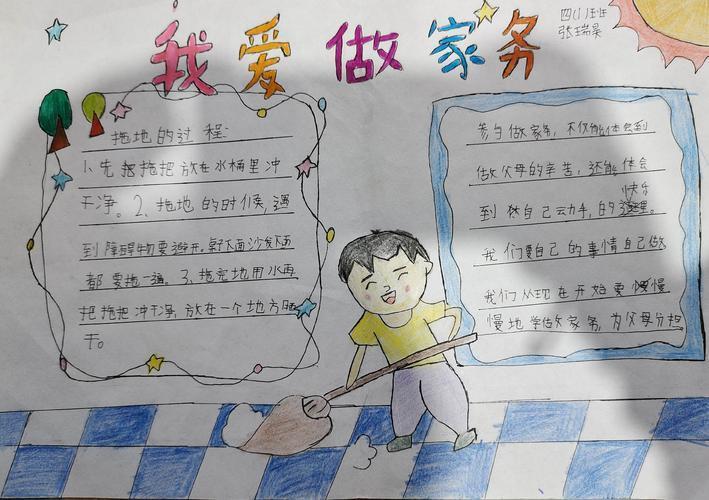 我爱做家务
四(1)班
张瑞昊
拖地的过程:
1、先把拖把放在水桶里冲
干净。2、拖地的时候,遇
到障碍物要避开。桌下面沙发下面
都要拖一遍。3、拖完地用水再
把拖把冲干净,放在一个地方晒
干。
参与做家务,不仅能体会到
做父母的辛苦,还能体会
到独自己动手,的快乐。
我们要自己的事情自己做
我们从现在开始要慢
慢地学做家务,为父母分担